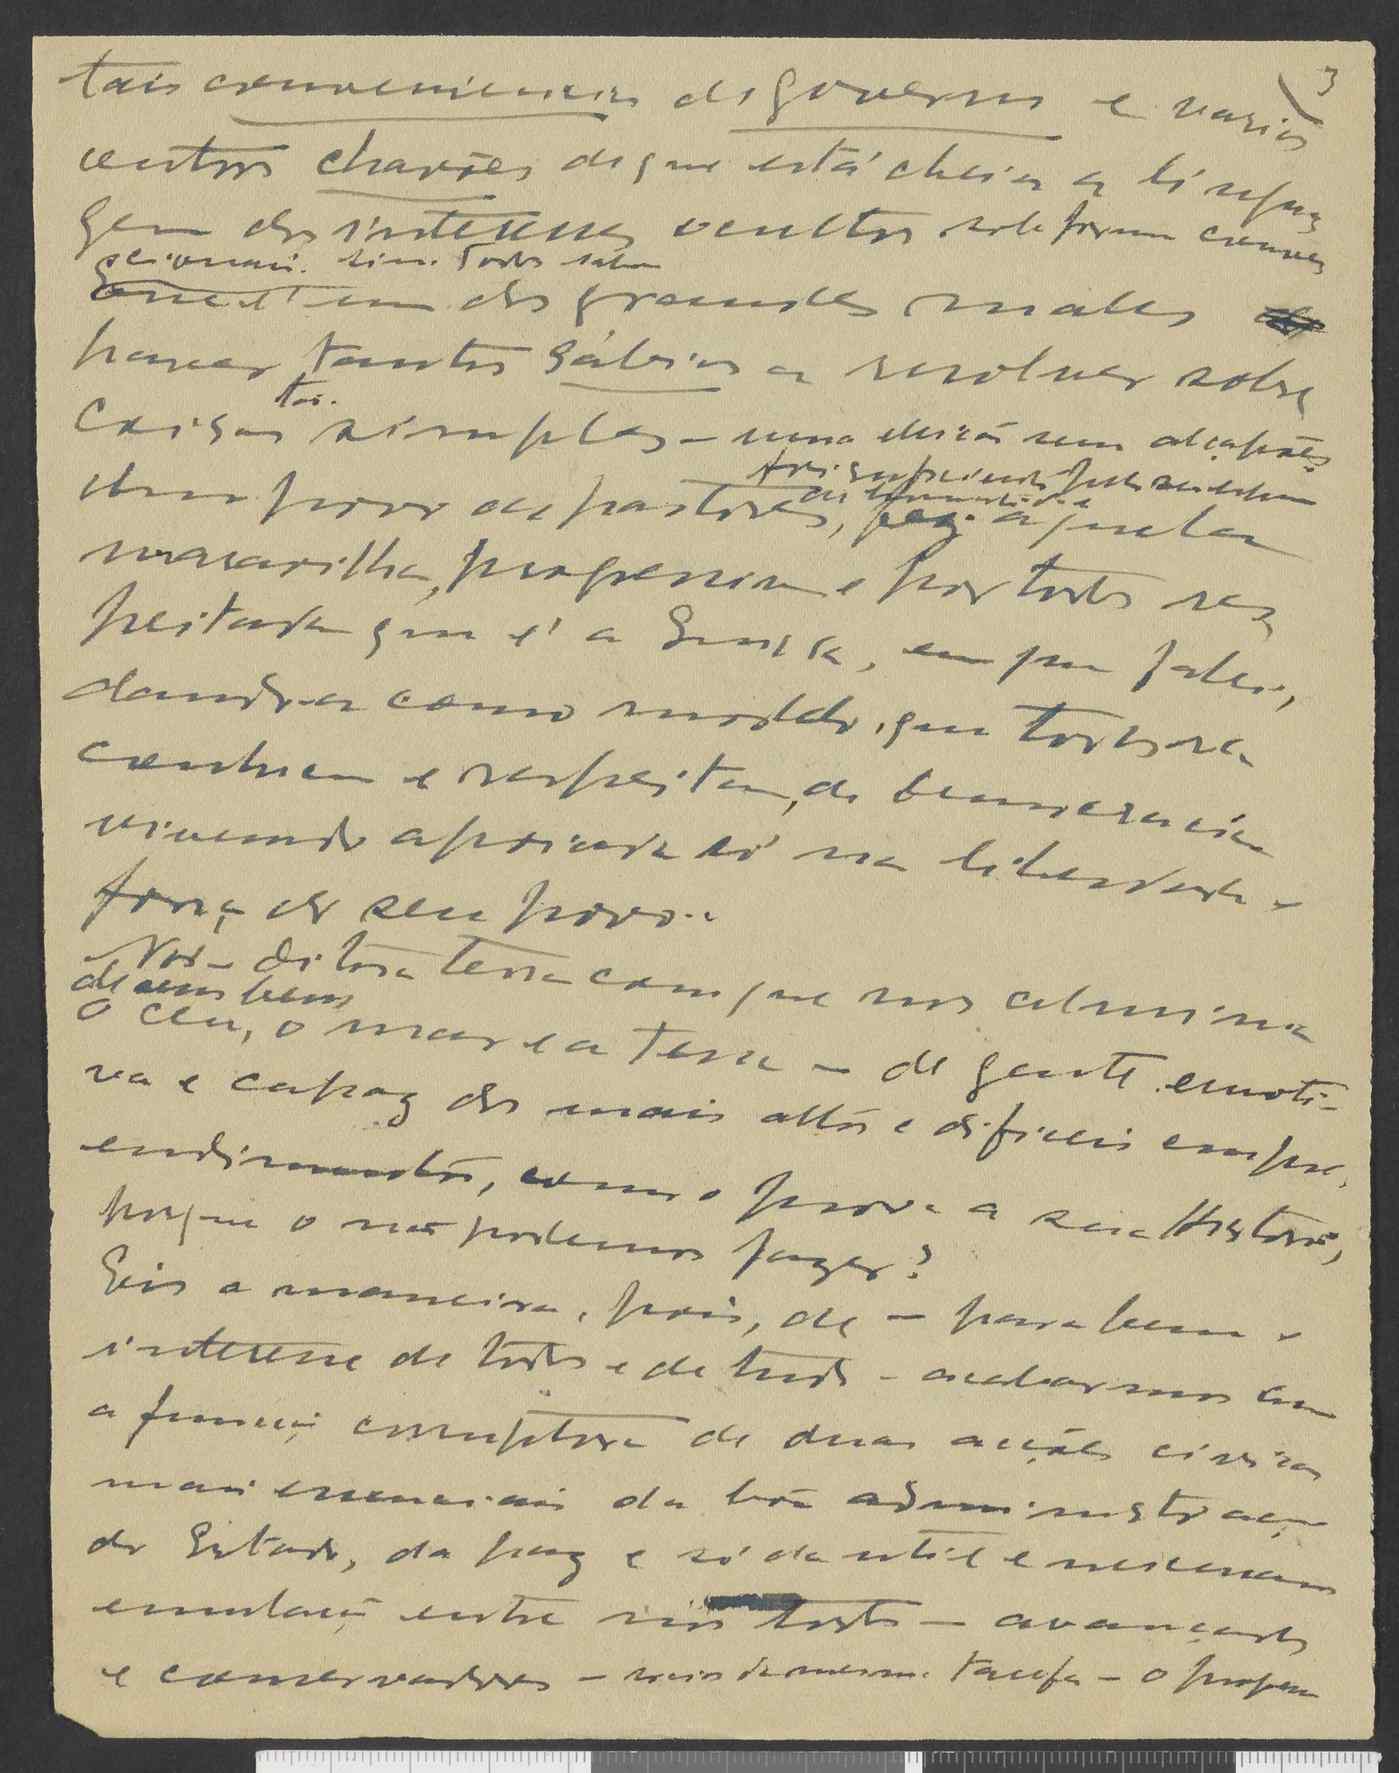 3
tais conveniencias de governos e varios
outros chavões de que está cheia a lingua
gem dos interesses ocultos sob forma conven
cionais. sim. Todos sabem
que é um dos grandes males
haver tantos sábios a resolver sobre
tai.
coisas simples - uma eleição sem alçapões
foi suficiente para
dum povo de pastores, fez aquela
maravilha, progressiva e por todos res
peitada que é a Suissa, em que falei,
dando-a como modelo, que todos
conhecem e respeitam, de democracia
vivendo apoiada só na liberdade e
força do seu povo..
- Nós - ditosa terra com que nos ilumina
de seus bens
o ceu, o mar e a terra - de gente emoti-
va e capaz dos mais altos e dificeis empre,
endimentos, como o prova a sua Historia,
porque o não podemos fazer?
Eis a maneira, pois, de - para bem e
interesse de todos e de tudo - acabarmos com
a função corruptora de duas acções civicas
mais essenciais da boa administração
do Estado, da paz e só da util e necessaria
emulação entre nós todos - avançados
e conservadores - socios da mesma tarefa - o